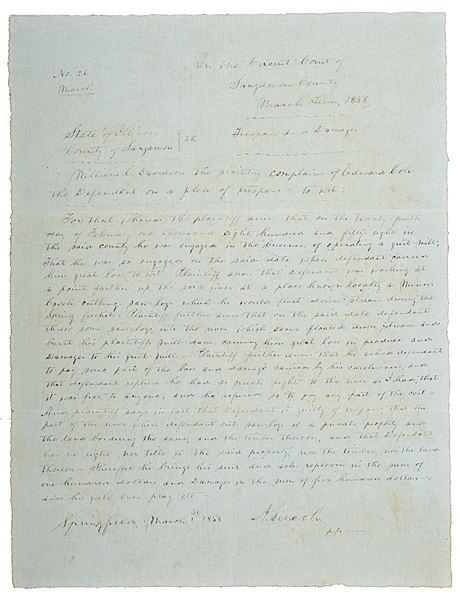 No. 26
March
In the Circuit Court of
Sangamon County
March Term, 1858
State of Illinois
County of Sangamon } ss.
Trespass — Damages
William Davidson the plaintiff complains of Edward Cole
the Defendant on a plea of trespass — to wit:
For that whereas the plaintiff avers that on the twenty-fourth
day of February one thousand eight hundred and fifty eight in
the said county he was engaged in the business of operating a grist mill,
That he was so engaged on the said date when defendant caused
him great loss to wit: Plaintiff avers that Defendant was working at
a point farther up the said river at a place known locally as
Creek cutting saw-logs which he would float down stream during the
Spring freshet. Plaintiff further avers that on the said date defendant
threw some saw logs into the river which same floated down stream and
burst his plaintiffs mill-dam causing him great loss in produce and
Damages to his grist mill — Plaintiff further avers that he asked defendant
to pay some part of the loss and damage caused by his carelessness and
that defendant replied he had as much right to the river as I had, that
it was free to anyone, and he refused to pay any part of the cost —
And plaintiff says in fact that Defendant is guilty of trespass that the
part of the river where defendant cuts saw-logs is a private property and
the land bordering the same, and the timber thereon, and that Defendant
has no right nor title to the said property nor the timber, nor the land
thereon — Therefore he brings his suit and asks replevin in the sum of
one hundred dollars and Damages in the sum of five hundred dollars —
and he will ever pray etc —
Springfield, March 1st 1858
A. Lincoln